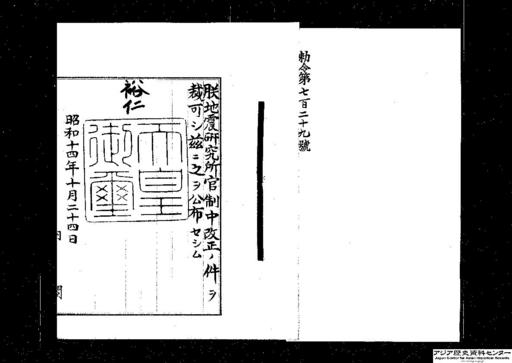 勅令第七百二十九號
朕地震研究所官制中改正ノ件ヲ
裁可シ茲ニ之ヲ公布セシム
裕仁
天皇
御璽
昭和十四年十月二十四日
内閣
アジア歴史資料センター
Japan Center for Asian Historical Records